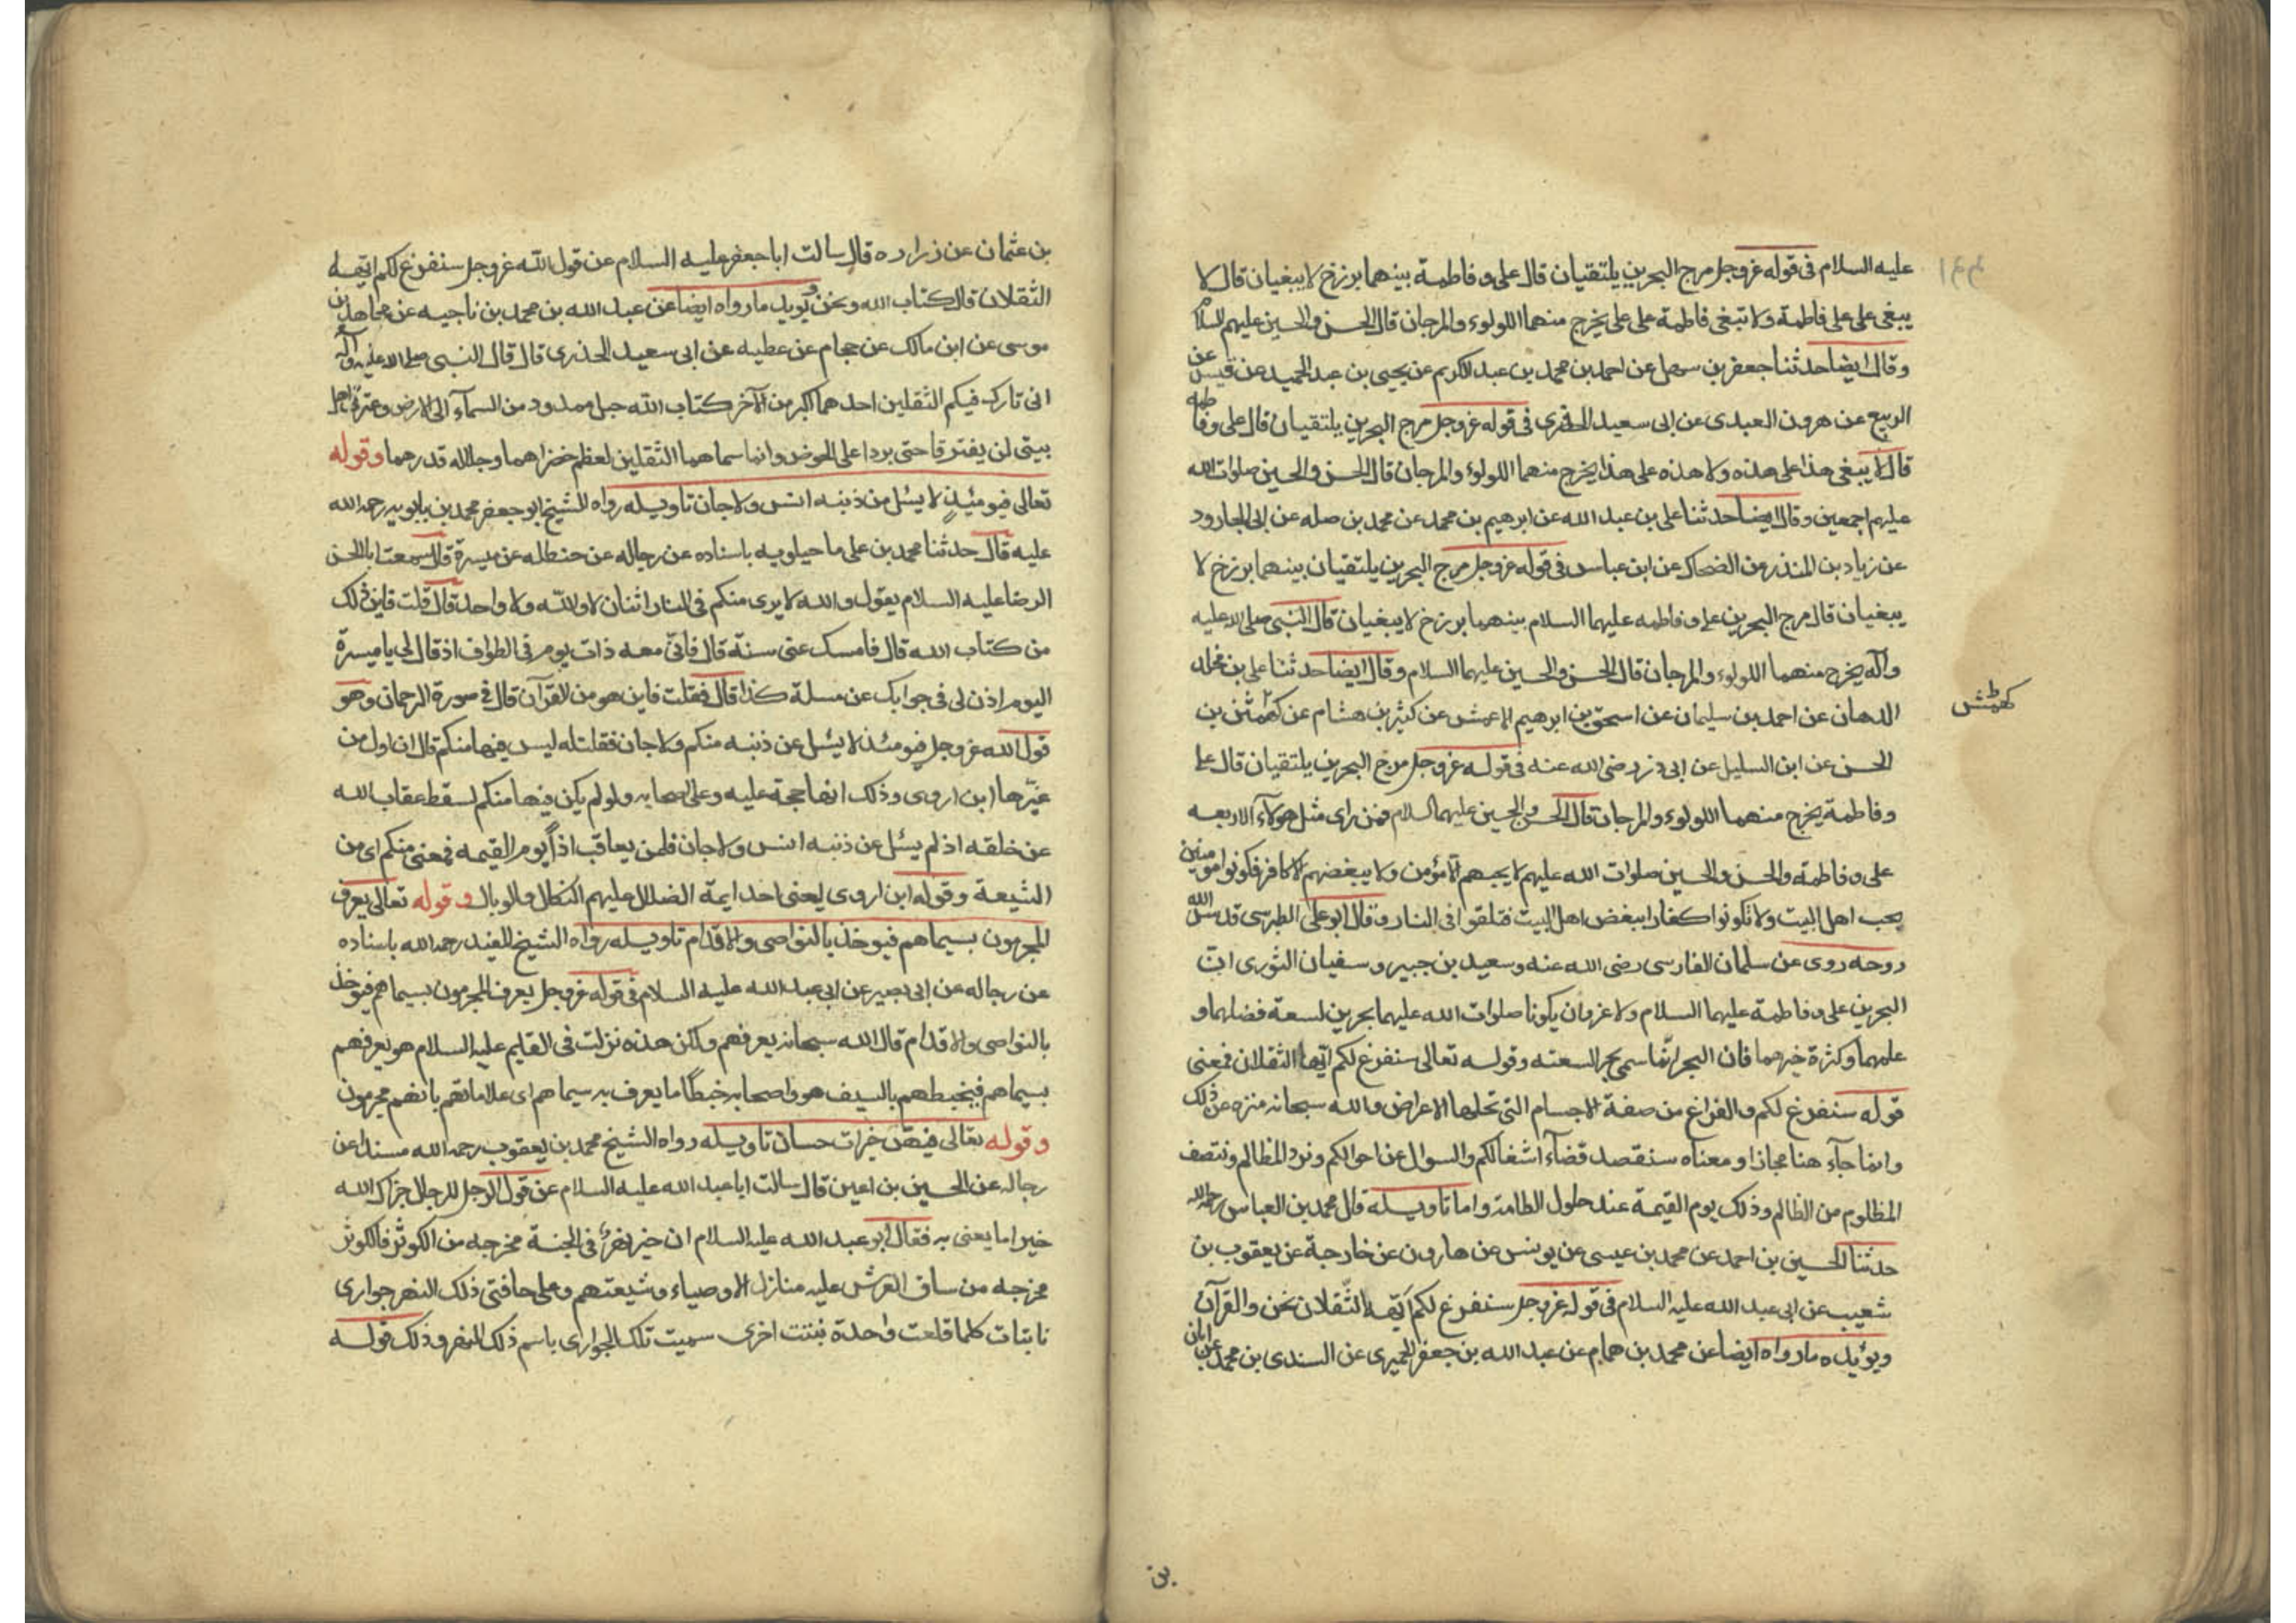 عليه السلام في قوله عز وجل مرج البحرين يلتقيان قال علي و فاطمة بينهما برزخ لا يبغيان قال لا
يبغي علي على فاطمة ولا تبغي فاطمة على علي يخرج منهما اللولوء والمرجان قال الحسن والحسين عليهم السلام
وقال ايضا حدثنا جعفر بن سهل عن احمد بن محمد بن عبد الكريم عن يحيى بن عبد الحميد عن قيس عن
الربيع عن هرون العبدى عن ابى سعيد الخدري في قوله عز وجل مرج البحرين يلتقيان قال علي وفاطمه
قال لا يبغي هذا على هذه ولا هذه على هذا يخرج منهما اللولوء والمرجان قال الحسن والحسين صلوات الله
عليهم اجمعين وقال ايضا حدثنا علي بن عبد الله عن ابرهيم بن محمد عن محمد بن صله عن ابى الجارود
عن زياد بن المنذر عن الضحاك عن ابن عباس في قوله عز وجل مرج البحرين يلتقيان بينهما برزخ لا
يبغيان قال مرج البحرين علي و فاطمه عليهما السلام بينهما برزخ لا يبغيان قال النبي صلى الله عليه
وآله يخرج منهما اللولوء والمرجان قال الحسن والحسين عليهما السلام وقال ايضا حدثنا علي بن مخلد
الدهان عن احمد بن سليمان عن اسحق بن ابرهيم الاعمش عن كثير بن هشام عن كهمش بن
كهمش
الحسن عن ابن السليل عن ابى ذر رضى الله عنه في قوله عز وجل مرج البحرين يلتقيان قال علي
وفاطمة يخرج منهما اللولوء والمرجان قال الحسن والحسين عليهما السلام فمن راى مثل هولاء الاربعه
على وفاطمة والحسن والحسين صلوات الله عليهم لا يحبهم الا مؤمن ولا يبغضهم الا كافر فكونوا مومنين
بحب اهل البيت ولا تكونوا كفارا ببغض اهل البيت فتلقوا في النار وقال ابو على الطبرسى قدس الله
روحه روى عن سلمان الفارسى رضى الله عنه وسعيد بن جبير وسفيان الثورى ان
البحرين علي وفاطمة عليهما السلام ولا غرو ان يكونا صلوات الله عليهما بحرين لسعة فضلهما و
علمهما وكثرة خيرهما فان البحر انما سمى بحرا لسعته وقوله تعالى سنفرغ لكم ايها الثقلان فمعنى
قوله سنفرغ لكم والفراغ من صفة الاجسام التي تحلها الاعراض والله سبحانه منزه عن ذلك
وانما جاء هنا مجازا ومعناه سنقصد قضاء اشغالكم والسوال عن احوالكم ونرد المظالم وننتصف
المظلوم من الظالم وذلك يوم القيمة عند حلول الطامة واما تاويله قال محمد بن العباس رحمه الله
حدثنا الحسين بن احمد عن محمد بن عيسى عن يونس عن هارون عن خارجة عن يعقوب بن
شعيب عن ابى عبد الله عليه السلام في قوله عز وجل سنفرغ لكم ايها الثقلان نحن والقرآن
ويؤيده ما رواه ايضا عن محمد بن همام عن عبد الله بن جعفر الحميرى عن السندى بن محمد عن ابان
بن
بن عثمان عن زراره قال سالت ابا جعفر عليه السلام عن قول الله عز وجل سنفرغ لكم ايها
الثقلان قال كتاب الله ونحن ويويد ما رواه ايضا عن عبد الله بن محمد بن ناجيه عن مجاهد بن
موسى عن ابن مالك عن حجام عن عطيه عن ابى سعيد الخدرى قال قال النبى صلى الله عليه وآله
انى تارك فيكم الثقلين احدهما اكبر من الآخر كتاب الله حبل ممدود من السماء الى الارض وعترتى اهل
بيتى لن يفترقا حتى يردا على الحوض وانما سماهما الثقلين لعظم خطرهما وجلالة قدرهما وقوله
تعالى فيومئذ لا يسئل من ذنبه انس ولا جان تاويله رواه الشيخ ابو جعفر محمد بن بابويه رحمة الله
عليه قال حدثنا محمد بن على ماجيلويه باسناده عن رجاله عن حنظله عن ميسرة قال سمعت ابا الحسن
الرضا عليه السلام يقول والله لا يرى منكم في النار اثنان لا والله ولا واحد قال قلت فاين ذلك
من كتاب الله قال فامسك عنى سنة قال فانى معه ذات يوم في الطواف اذ قال لى يا ميسرة
اليوم اذن لى في جوابك عن مسلة كذا قال فقلت فاين هو من القرآن قال في سورة الرحمان وهو
قول الله عز وجل فيومئذ لا يسئل عن ذنبه منكم ولا جان فقلت له ليس فيها منكم قال ان اول من
غيرها ابن اروى وذلك انها حجة عليه وعلى اصحابه ولو لم يكن فيها منكم لسقط عقاب الله
عن خلقه اذ لم يسئل عن ذنبه انس ولا جان فلمن يعاقب اذا يوم القيمه فمعنى منكم اى من
الشيعة وقوله ابن اروى يعنى احد ايمة الضلال عليهم النكال والوبال وقوله تعالى يعرف
المجرمون بسيماهم فيوخذ بالنواصى والاقدام تاويله رواه الشيخ المفيد رحمه الله باسناده
عن رجاله عن ابى بصير عن ابى عبد الله عليه السلام في قوله عز وجل يعرف المجرمون بسيماهم فيوخذ
بالنواصى والاقدام قال الله سبحانه يعرفهم ولكن هذه نزلت في القايم عليه السلام هو يعرفهم
بسيماهم فيخبطهم بالسيف هو واصحابه خبطا ما يعرف به سيماهم اى علاماتهم بانهم مجرمون
وقوله تعالى فيهن خيرات حسان تاويله رواه الشيخ محمد بن يعقوب رحمه الله مسندا عن
رجاله عن الحسين بن اعين قال سالت ابا عبد الله عليه السلام عن قول الرجل للرجل جزاك الله
خيرا ما يعنى به فقال ابو عبد الله عليه السلام ان خيرا نهر في الجنة مخرجه من الكوثر فالكوثر
مخرجه من ساق العرش عليه منازل الاوصياء وشيعتهم وعلى حافتى ذلك النهر جوارى
نابتات كلما قلعت واحدة نبتت اخرى سميت تلك الجوارى باسم ذلك النهر وذلك قوله